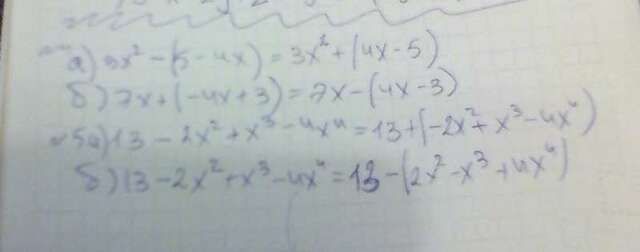 а) 3x² - (5 - 4x) = 3x² + (4x - 5)
б) 7x + (-4x + 3) = 7x - (4x - 3)
5а) 13 - 2x² + x³ - 4x⁴ = 13 + (-2x² + x³ - 4x⁴)
б) 13 - 2x² + x³ - 4x⁴ = 13 - (2x² - x³ + 4x⁴)